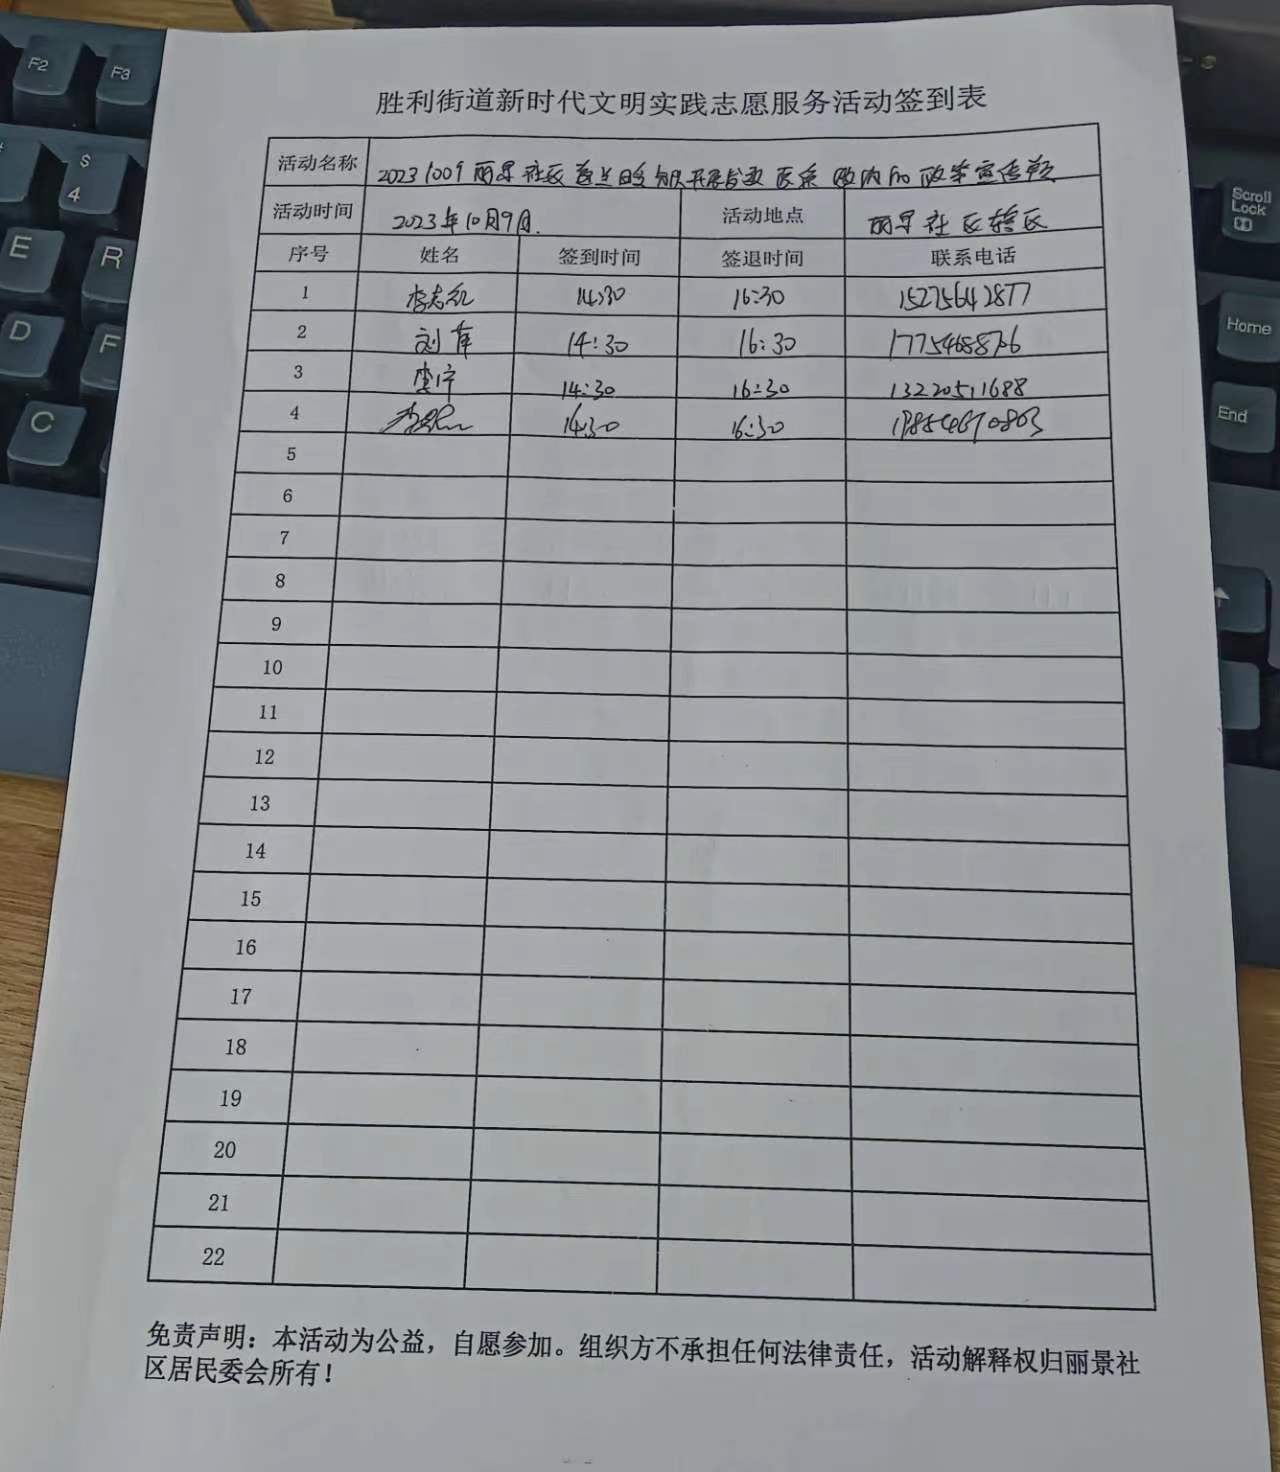 胜利街道新时代文明实践志愿服务活动签到表
活动名称 20231009丽景社区 开展 医保 政策宣传
活动时间 2023年10月9日. 活动地点 丽景社区辖区
序号 姓名 签到时间 签退时间 联系电话
1 14:30 16:30 15275642877
2 刘 14:30 16:30
3 李宁 14:30 16:30 13220511688
4 14:30 16:30
5
6
7
8
9
10
11
12
13
14
15
16
17
18
19
20
21
22
免责声明：本活动为公益，自愿参加。组织方不承担任何法律责任，活动解释权归丽景社
区居民委会所有！
F2
F3
$
4
E
R
D
F
C
Scroll
Lock
Home
End